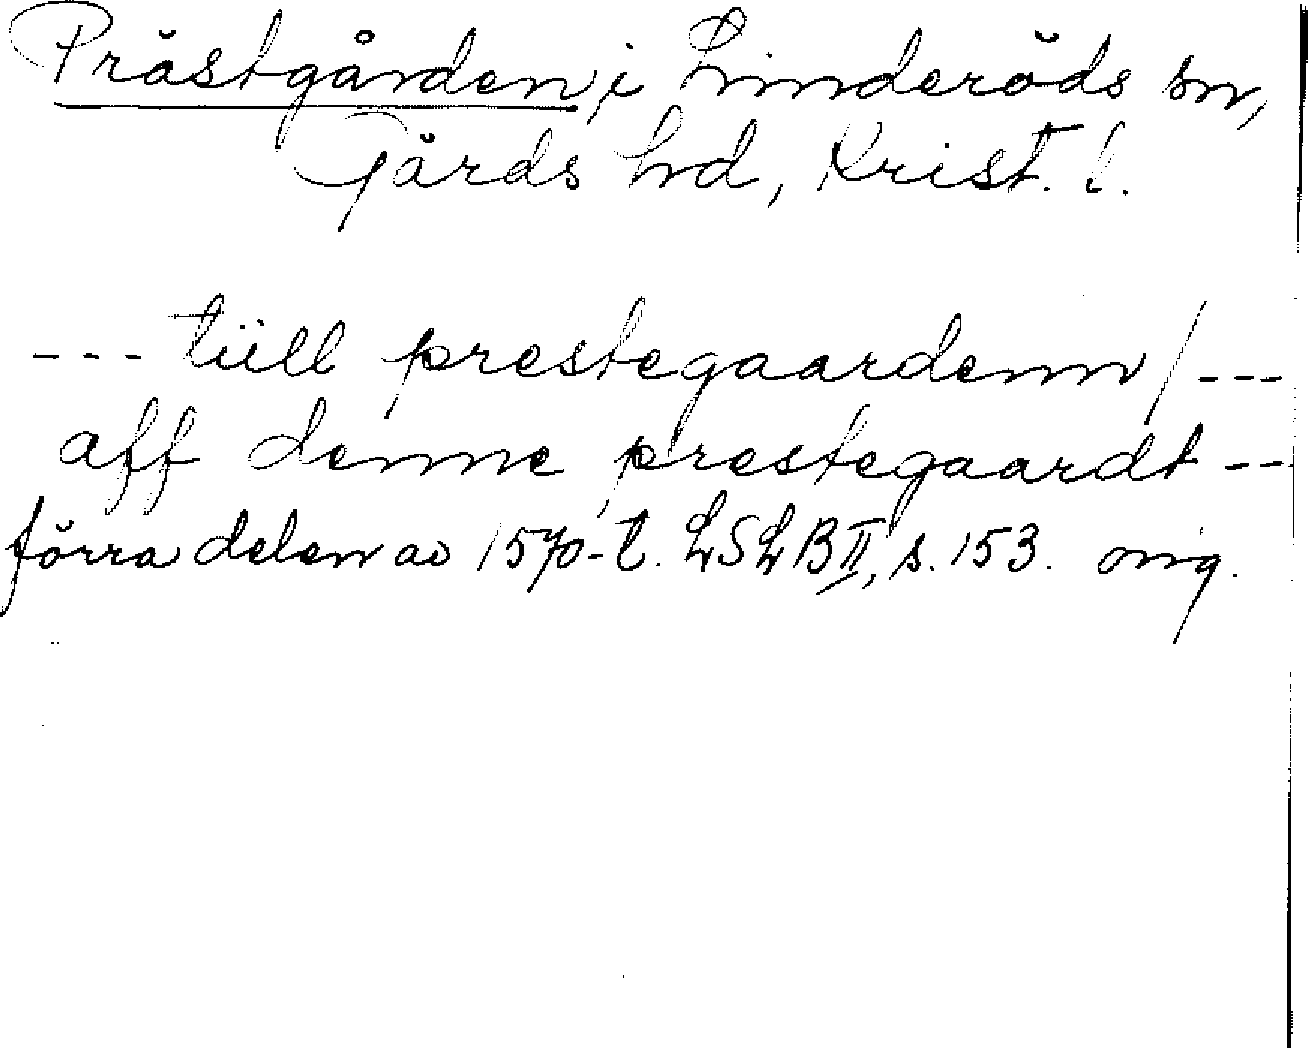 Prästgården, i Linderöds sn,
Gärds hd, Krist. l.
--- tüll prestegaardenn / ---
aff denne prestegaardt --
förra delen av 1570-t. LSLB II, s. 153. orig.